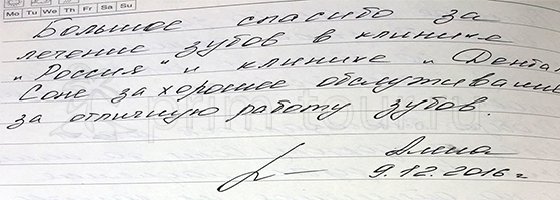 Mo Tu We Th Fr Sa Su
Большое спасибо за
лечение зубов в клинике
„Россия“ и клинике „Дента
Соне за хорошее обслуживание
за отличную работу зубов.
9.12.2016 г